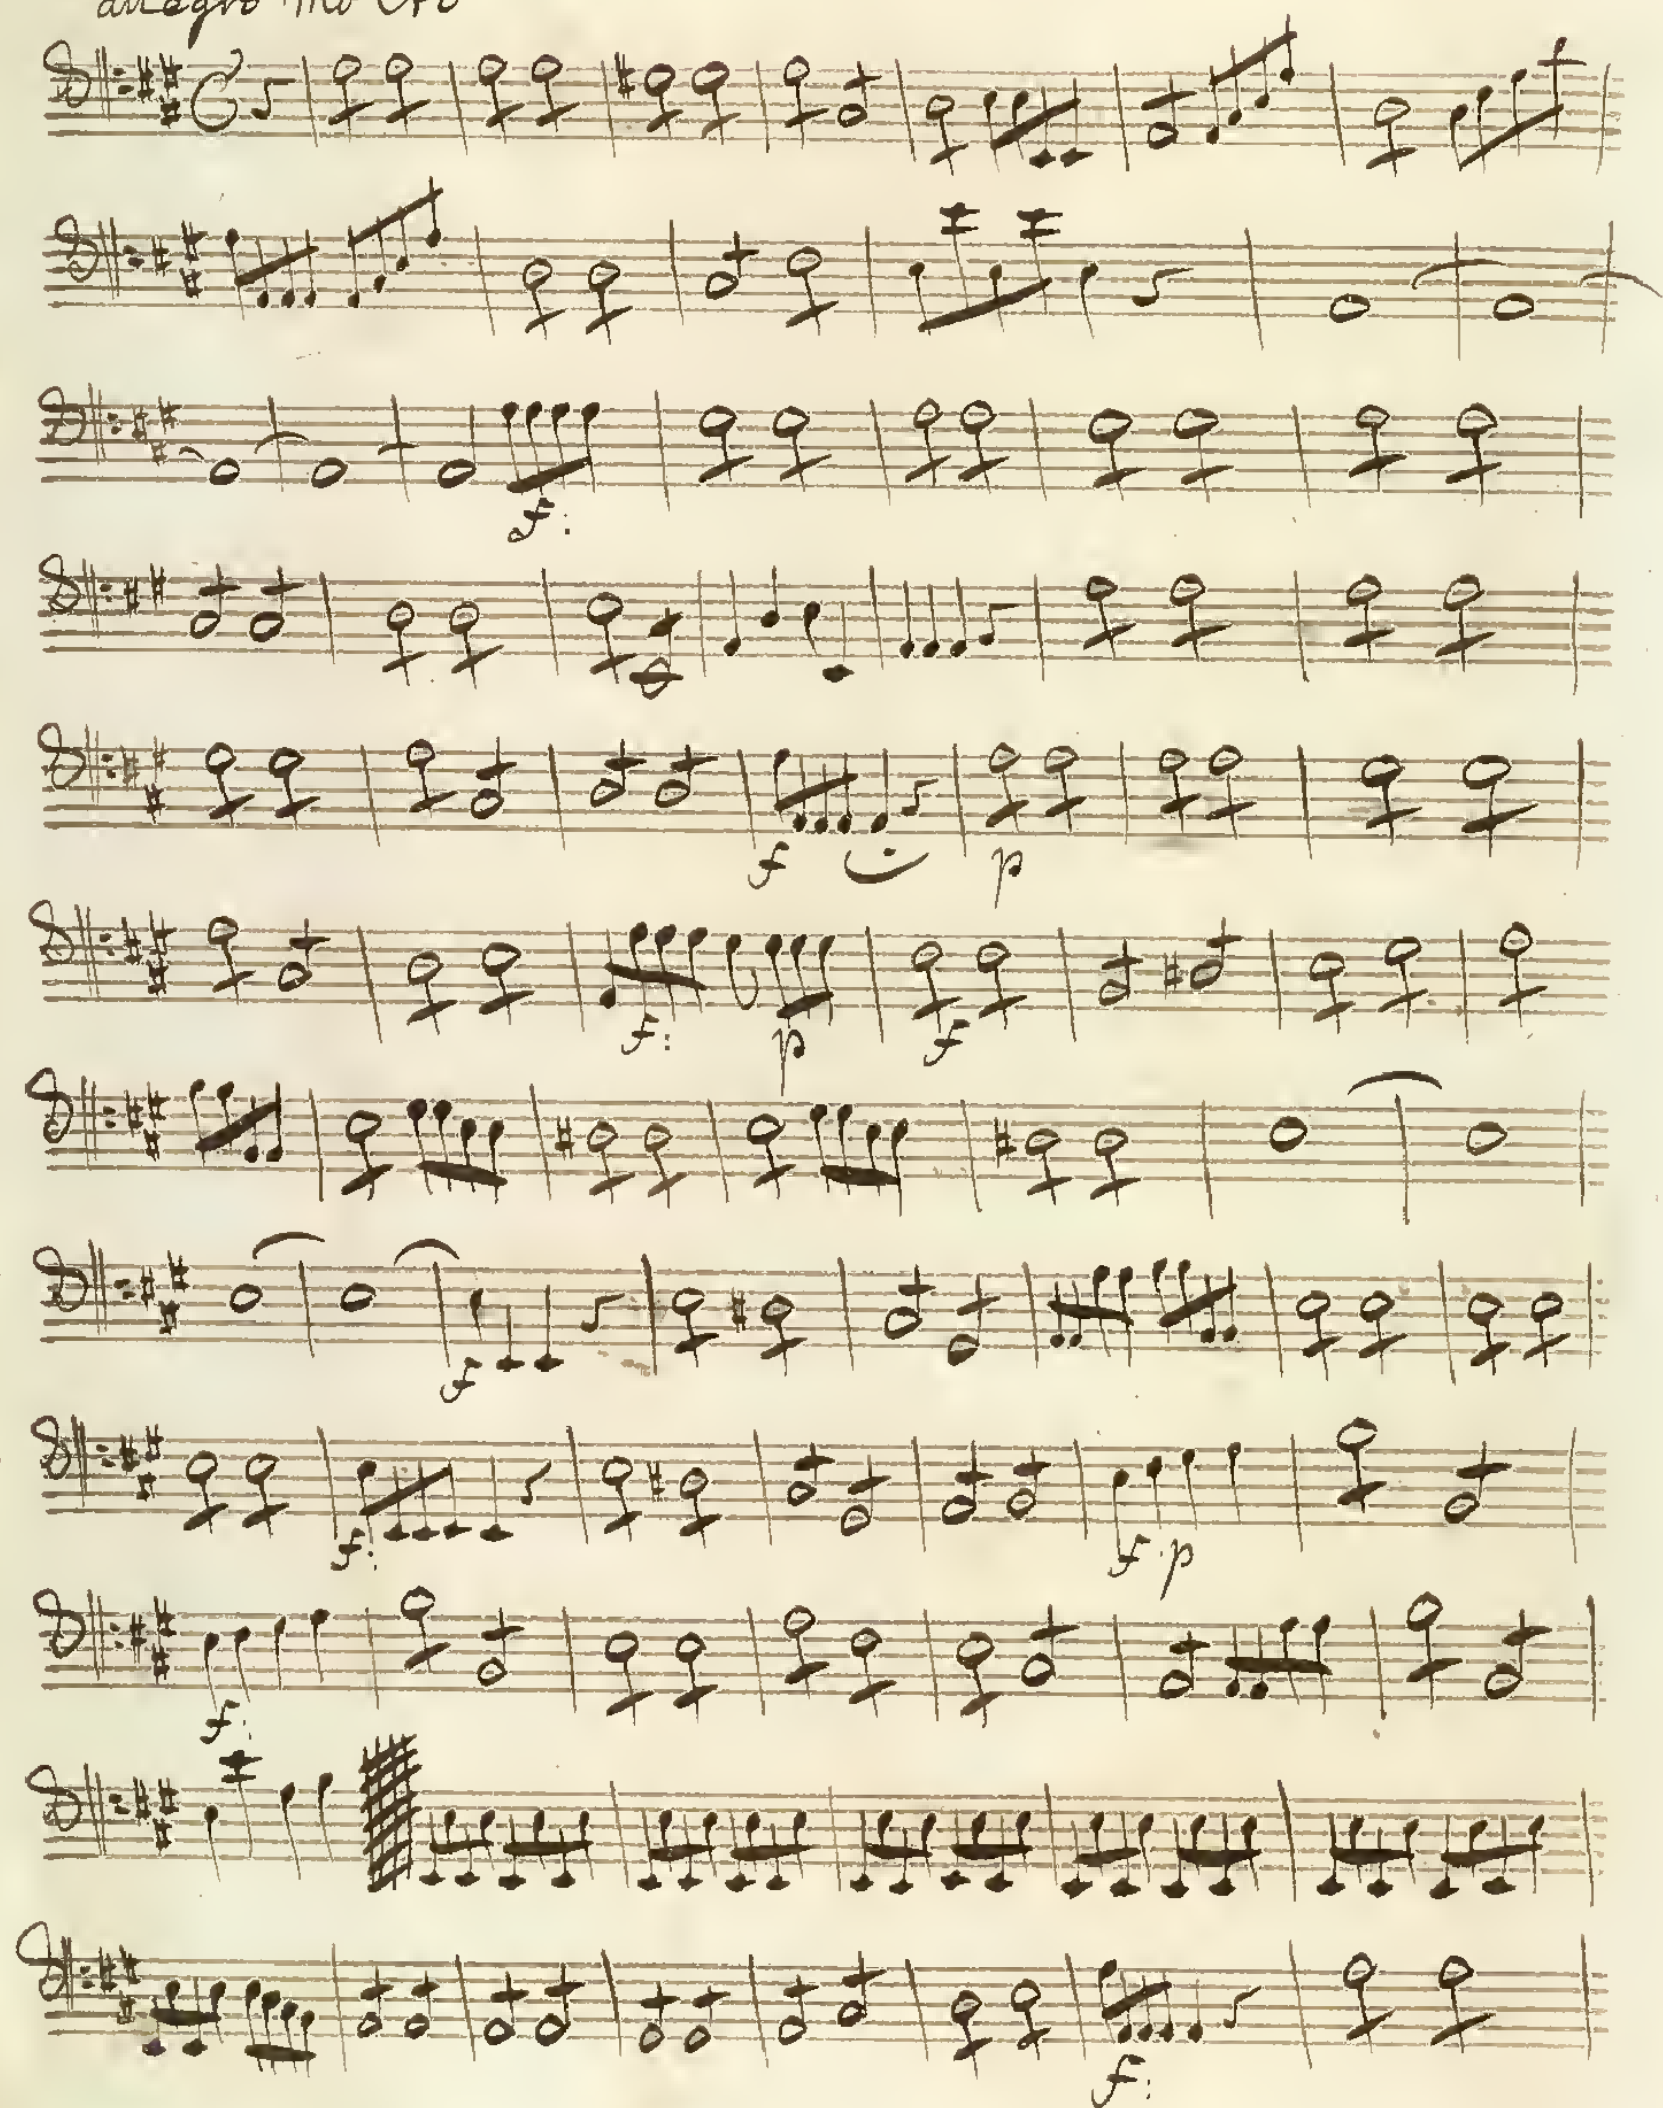 allegro molto
f:
f p
f: p f
f
f: f p
f:
f: